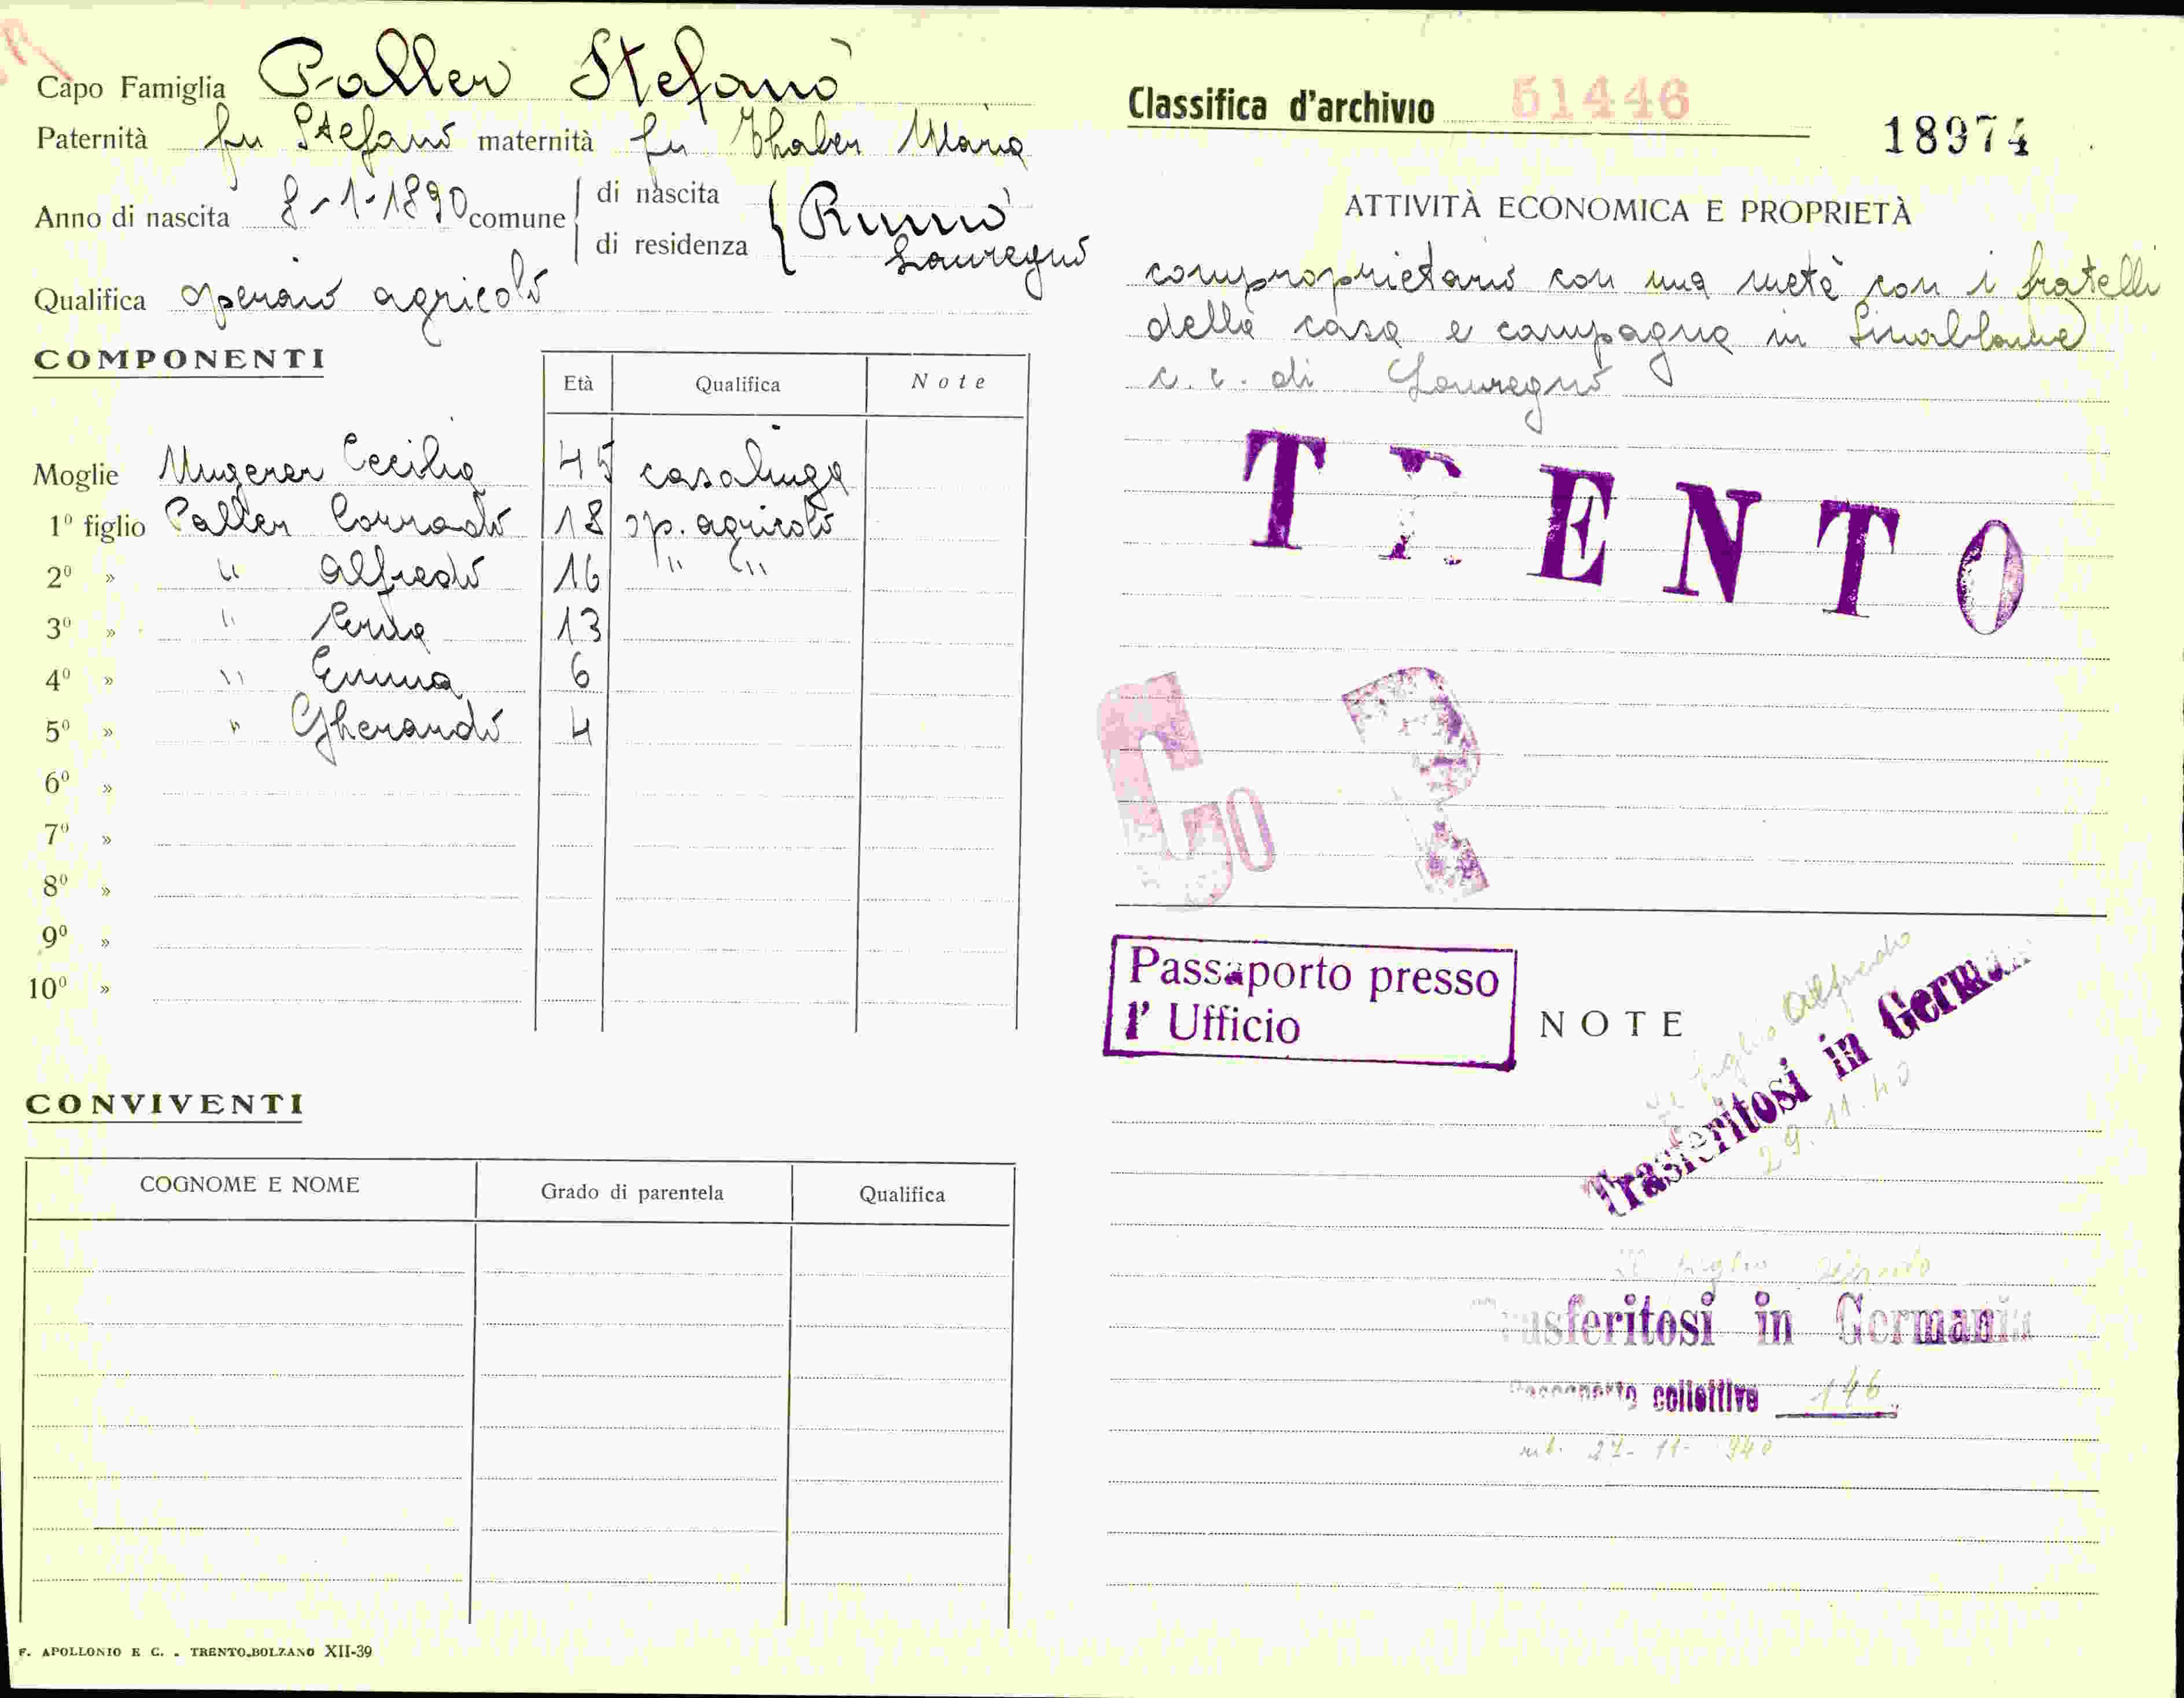 Capo Famiglia Paller Stefano
Paternità fu Stefano maternità fu Thaler Maria
Anno di nascita 8-1-1890 comune di nascita Rumo
di residenza Lauregno
Qualifica operaio agricolo
COMPONENTI
Età Qualifica Note
Moglie Ungerer Cecilia 45 casalinga
1º figlio Paller Corrado 18 op. agricolo
2º » " Alfredo 16 " "
3º » " 13
4º » " Emma 6
5º » " Gherardo 4
6º »
7º »
8º »
9º »
10º »
CONVIVENTI
COGNOME E NOME Grado di parentela Qualifica
F. APOLLONIO E C. - TRENTO-BOLZANO XII-39
Classifica d'archivio 51446
18974
ATTIVITÀ ECONOMICA E PROPRIETÀ
comproprietario con una metà con i fratelli
della casa e campagna in
c. c. di Lauregno
TRENTO
G R
60
Passaporto presso
l' Ufficio
NOTE
il figlio Alfredo
Trasferitosi in Germania
29.11.40
Il figlio
Trasferitosi in Germania
Passaporto collettivo 146
27-11-940